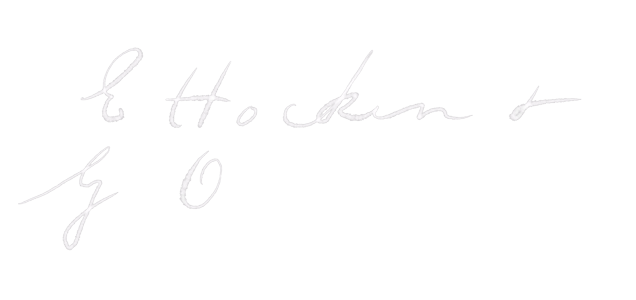 E Hockin &
G O